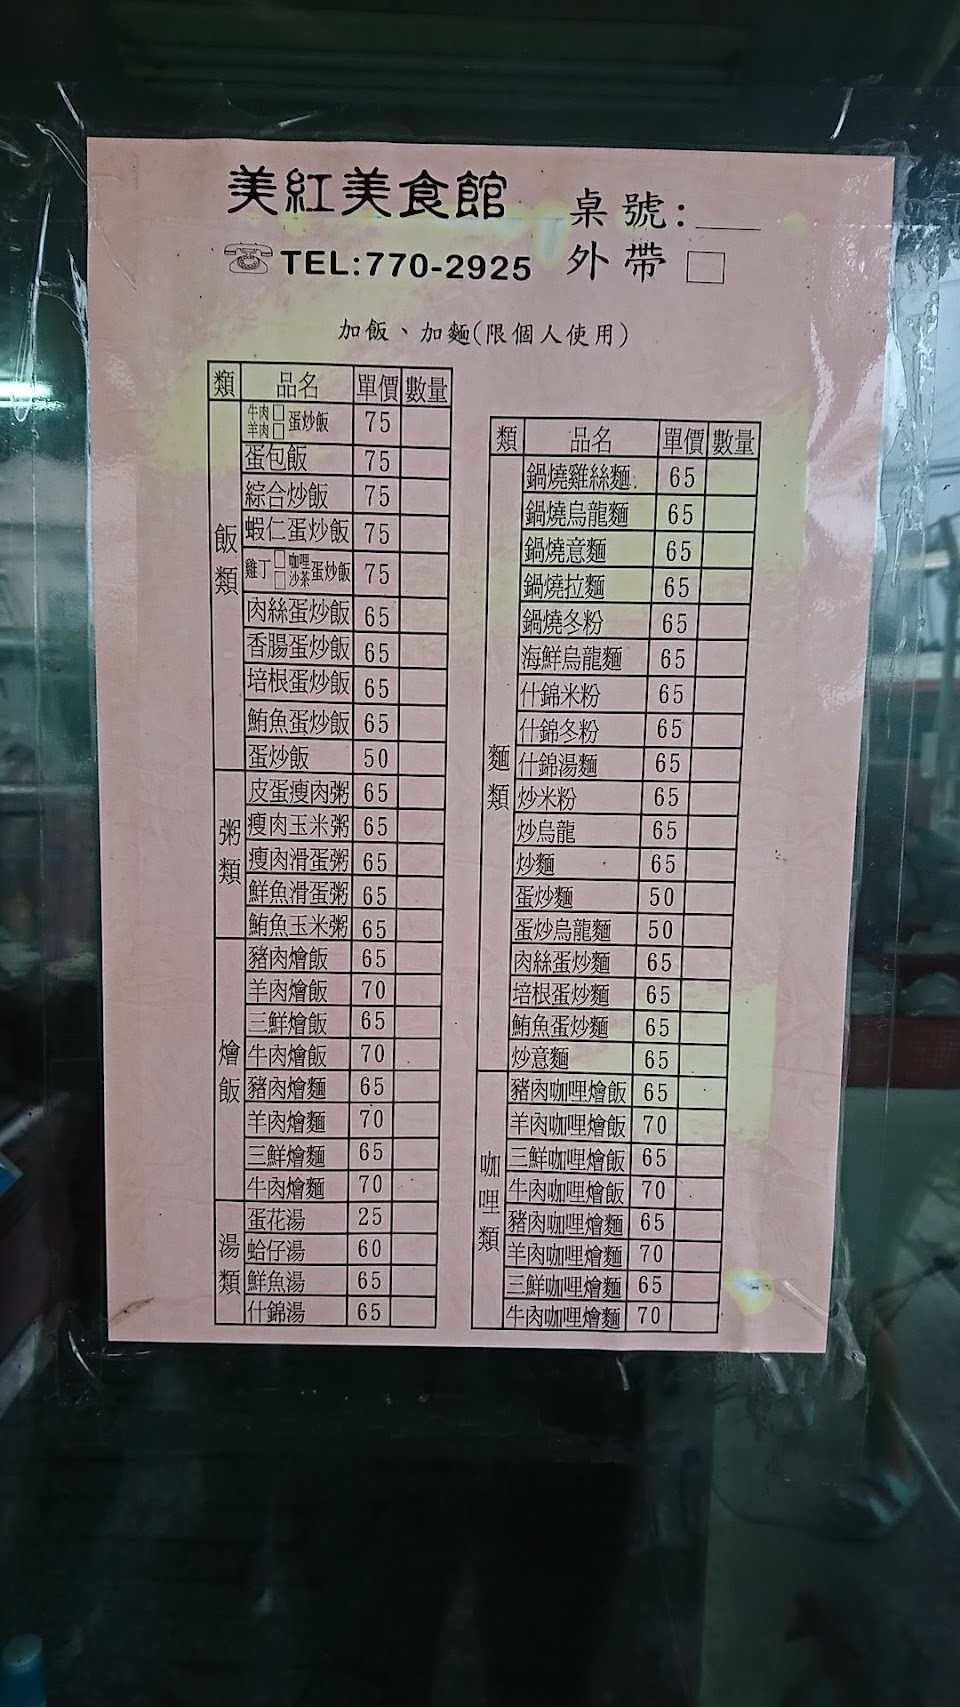 美紅美食館
桌號:
☏TEL:770-2925
外帶□
加飯、加麵(限個人使用)
類 品名 單價 數量
飯類
牛肉□ 羊肉□ 蛋炒飯 75
蛋包飯 75
綜合炒飯 75
蝦仁蛋炒飯 75
雞丁 □咖哩 □沙茶 蛋炒飯 75
肉絲蛋炒飯 65
香腸蛋炒飯 65
培根蛋炒飯 65
鮪魚蛋炒飯 65
蛋炒飯 50
粥類
皮蛋瘦肉粥 65
瘦肉玉米粥 65
瘦肉滑蛋粥 65
鮮魚滑蛋粥 65
鮪魚玉米粥 65
燴飯
豬肉燴飯 65
羊肉燴飯 70
三鮮燴飯 65
牛肉燴飯 70
豬肉燴麵 65
羊肉燴麵 70
三鮮燴麵 65
牛肉燴麵 70
湯類
蛋花湯 25
蛤仔湯 60
鮮魚湯 65
什錦湯 65
類 品名 單價 數量
麵類
鍋燒雞絲麵 65
鍋燒烏龍麵 65
鍋燒意麵 65
鍋燒拉麵 65
鍋燒冬粉 65
海鮮烏龍麵 65
什錦米粉 65
什錦冬粉 65
什錦湯麵 65
炒米粉 65
炒烏龍 65
炒麵 65
蛋炒麵 50
蛋炒烏龍麵 50
肉絲蛋炒麵 65
培根蛋炒麵 65
鮪魚蛋炒麵 65
炒意麵 65
咖哩類
豬肉咖哩燴飯 65
羊肉咖哩燴飯 70
三鮮咖哩燴飯 65
牛肉咖哩燴飯 70
豬肉咖哩燴麵 65
羊肉咖哩燴麵 70
三鮮咖哩燴麵 65
牛肉咖哩燴麵 70